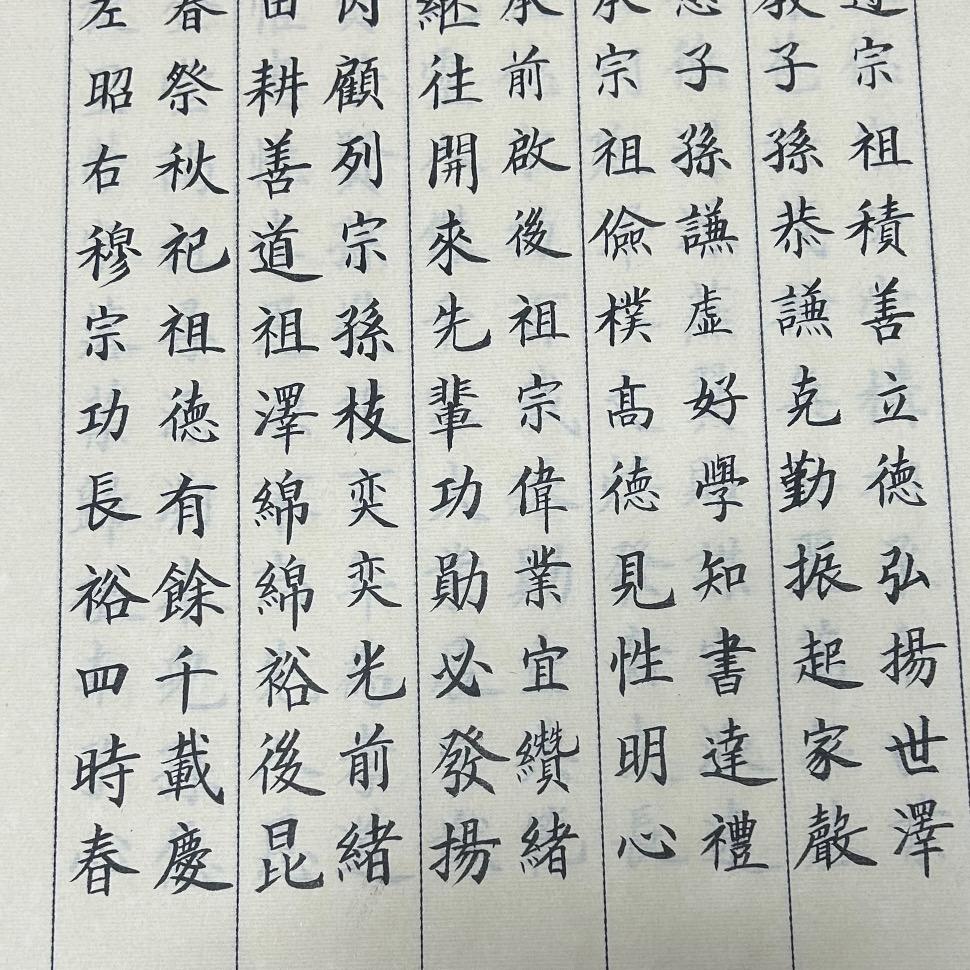 宗祖積善立德弘揚世澤
教子孫恭謙克勤振起家聲
子孫謙虛好學知書達禮
承宗祖儉樸高德見性明心
承前啟後祖宗偉業宜纘緒
繼往開來先輩功勛必發揚
丙顧列宗孫枝奕奕光前緒
田耕善道祖澤綿綿裕後昆
春祭秋祀祖德有餘千載慶
左昭右穆宗功長裕四時春